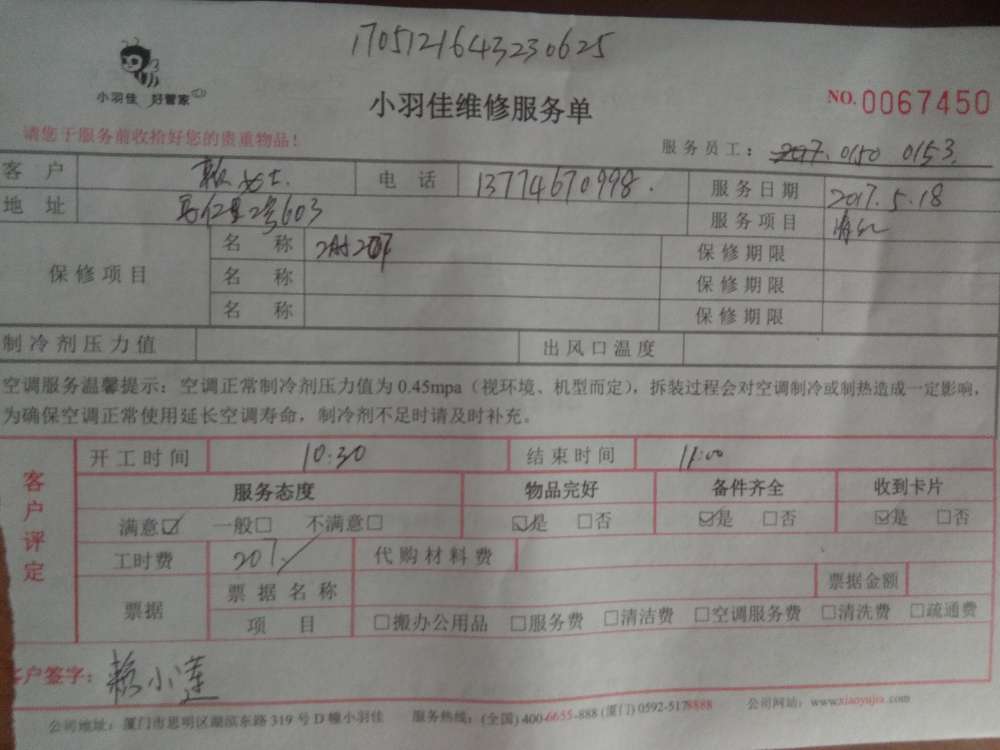 1705121643230625
小羽佳 好管家
小羽佳维修服务单
NO. 0067450
请您于服务前收拾好您的贵重物品！
服务员工： 0150 0153.
客 户 女士. 电 话 13774670998. 服务日期 2017.5.18
地 址 2号603 服务项目
保修项目 名 称 保修期限
名 称 保修期限
名 称 保修期限
制冷剂压力值 出风口温度
空调服务温馨提示：空调正常制冷剂压力值为 0.45mpa（视环境、机型而定），拆装过程会对空调制冷或制热造成一定影响，
为确保空调正常使用延长空调寿命，制冷剂不足时请及时补充。
客户评定
开工时间 10:30 结束时间 11:00
服务态度 物品完好 备件齐全 收到卡片
满意☑ 一般□ 不满意□ ☑是 □否 ☑是 □否 ☑是 □否
工时费 20 代购材料费
票据 票据名称 票据金额
项 目 □搬办公用品 □服务费 □清洁费 □空调服务费 □清洗费 □疏通费
客户签字： 赖小莲
公司地址：厦门市思明区湖滨东路 319 号 D 幢小羽佳 服务热线：(全国) 400-6655-888 (厦门) 0592-5178888 公司网站：www.xiaoyujia.com